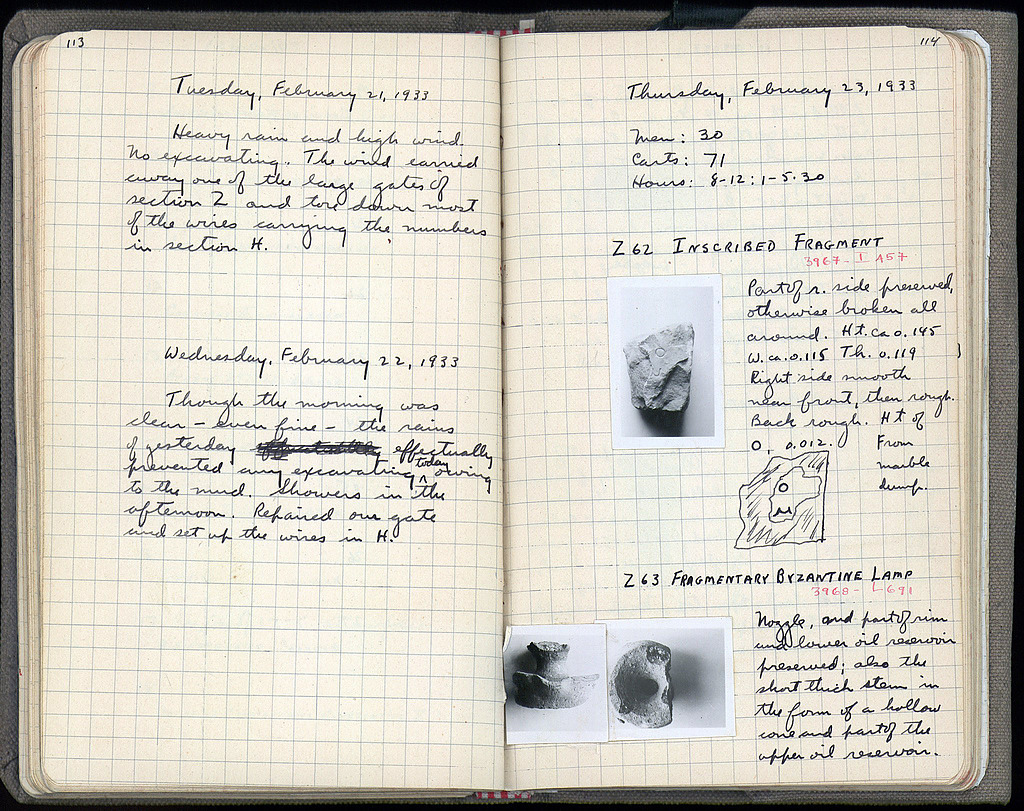 113
Tuesday, February 21, 1933
Heavy rain and high wind.
No excavating. The wind carried
away one of the large gates of
section Z and tore down most
of the wires carrying the numbers
in section H.
Wednesday, February 22, 1933
Though the morning was
clear – even fine – the rains
of yesterday effectually
prevented any excavating today owing
to the mud. Showers in the
afternoon. Repaired our gate
and set up the wires in H.
114
Thursday, February 23, 1933
Men: 30
Carts: 71
Hours: 8-12; 1-5.30
Z 62 INSCRIBED FRAGMENT
3967- I 457
Part of r. side preserved,
otherwise broken all
around. Ht. ca 0.145
W. ca. 0.115 Th. 0.119
Right side smooth
near front, then rough.
Back rough. Ht of
O, 0.012. From
marble
dump.
O
Z 63 FRAGMENTARY BYZANTINE LAMP
3968- L 691
Nozzle, and part of rim
and lower oil reservoir
preserved; also the
short thick stem in
the form of a hollow
cone and part of the
upper oil reservoir.